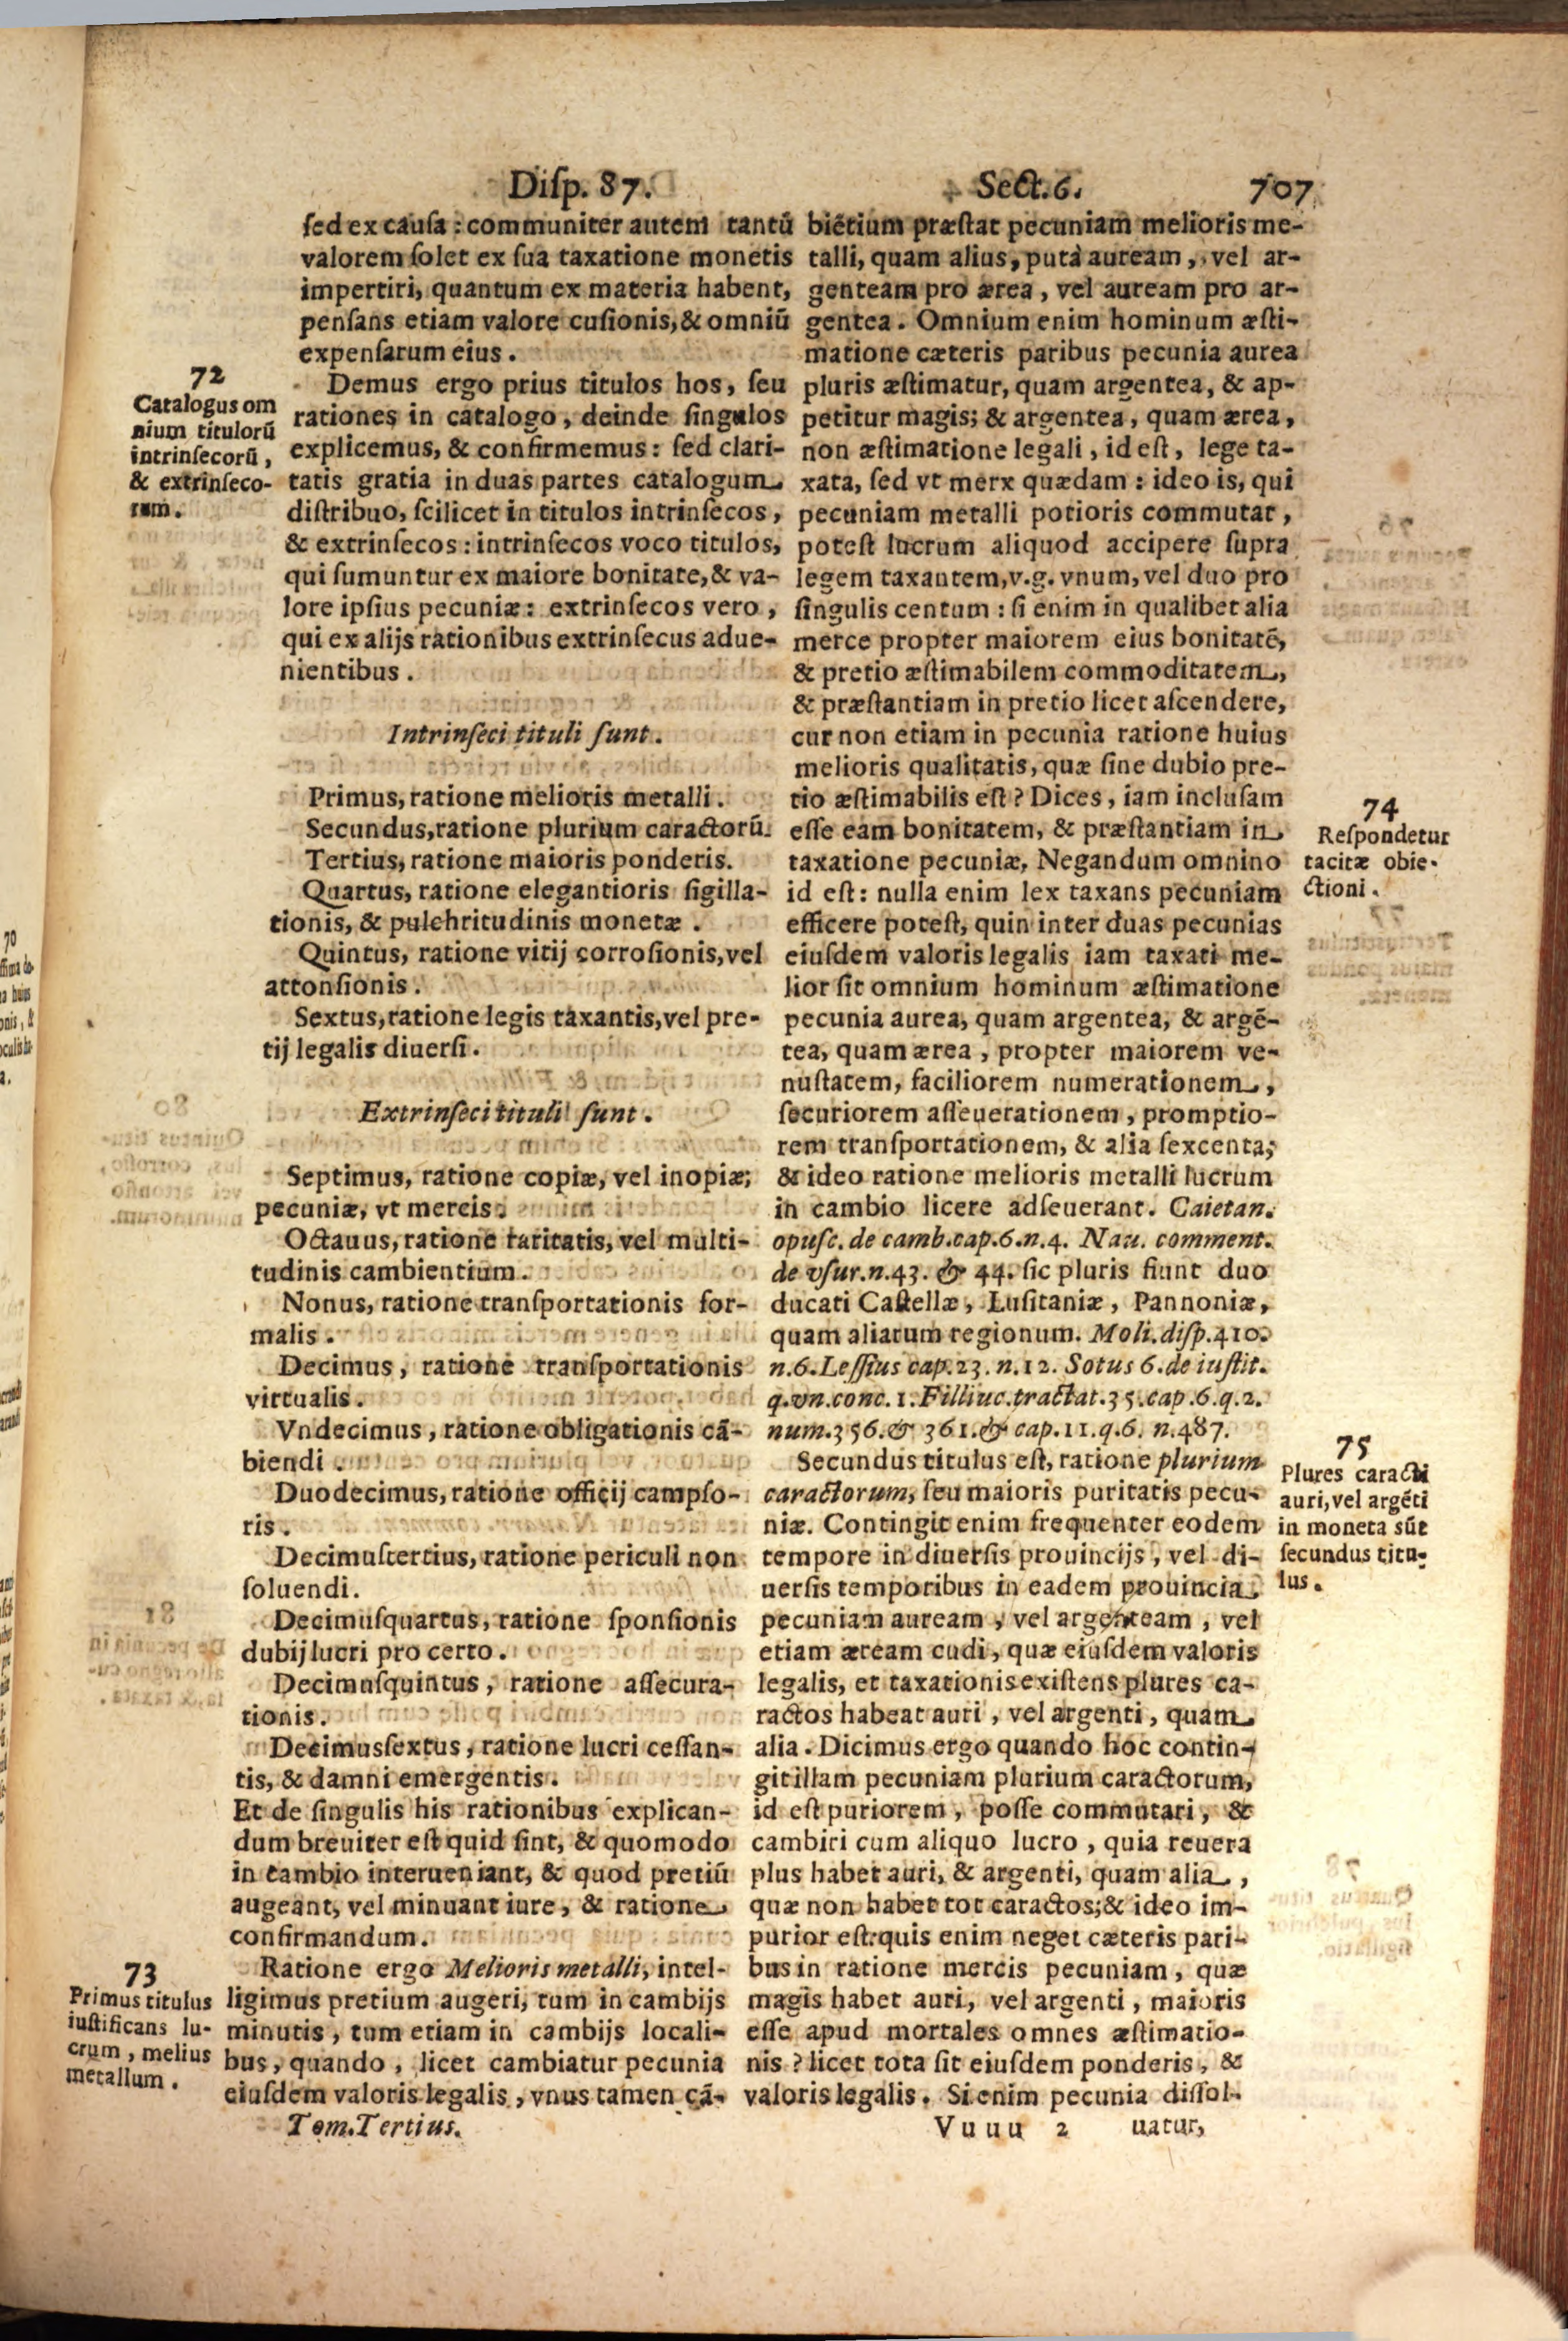 Disp. 87. Sect. 6. 707
sed ex causa: communiter autem tantū
valorem solet ex sua taxatione monetis
impertiri, quantum ex materia habent,
pensans etiam valore cusionis, & omniū
expensarum eius.
72
Catalogus om
nium titulorū
intrinsecorū,
& extrinseco-
rum.
Demus ergo prius titulos hos, seu
rationes in catalogo, deinde singulos
explicemus, & confirmemus: sed clari-
tatis gratia in duas partes catalogum
distribuo, scilicet in titulos intrinsecos,
& extrinsecos: intrinsecos voco titulos,
qui sumuntur ex maiore bonitate, & va-
lore ipsius pecuniæ: extrinsecos vero,
qui ex alijs rationibus extrinsecus adue-
nientibus.
Intrinseci tituli sunt.
Primus, ratione melioris metalli.
Secundus, ratione plurium caractorū.
Tertius, ratione maioris ponderis.
Quartus, ratione elegantioris sigilla-
tionis, & pulchritudinis monetæ.
Quintus, ratione vitij corrosionis, vel
attonsionis.
Sextus, ratione legis taxantis, vel pre-
tij legalis diuersi.
Extrinseci tituli sunt.
Septimus, ratione copiæ, vel inopiæ;
pecuniæ, vt mercis.
Octauus, ratione raritatis, vel multi-
tudinis cambientium.
Nonus, ratione transportationis for-
malis.
Decimus, ratione transportationis
virtualis.
Vndecimus, ratione obligationis cā-
biendi.
Duodecimus, ratione officij campso-
ris.
Decimustertius, ratione periculi non
soluendi.
Decimusquartus, ratione sponsionis
dubij lucri pro certo.
Decimusquintus, ratione assecura-
tionis.
Decimussextus, ratione lucri cessan-
tis, & damni emergentis.
Et de singulis his rationibus explican-
dum breuiter est quid sint, & quomodo
in cambio interueniant, & quod pretiū
augeant, vel minuant iure, & ratione
confirmandum.
73
Primus titulus
iustificans lu-
crum, melius
metallum.
Ratione ergo Melioris metalli, intel-
ligimus pretium augeri, tum in cambijs
minutis, tum etiam in cambijs locali-
bus, quando, licet cambiatur pecunia
eiusdem valoris legalis, vnus tamen cā-
Tom. Tertius.
biētium præstat pecuniam melioris me-
talli, quam alius, puta auream, vel ar-
genteam pro ærea, vel auream pro ar-
gentea. Omnium enim hominum æsti-
matione cæteris paribus pecunia aurea
pluris æstimatur, quam argentea, & ap-
petitur magis; & argentea, quam ærea,
non æstimatione legali, id est, lege ta-
xata, sed vt merx quædam: ideo is, qui
pecuniam metalli potioris commutat,
potest lucrum aliquod accipere supra
legem taxantem, v.g. vnum, vel duo pro
singulis centum: si enim in qualibet alia
merce propter maiorem eius bonitatē,
& pretio æstimabilem commoditatem,
& præstantiam in pretio licet ascendere,
cur non etiam in pecunia ratione huius
melioris qualitatis, quæ sine dubio pre-
tio æstimabilis est? Dices, iam inclusam
esse eam bonitatem, & præstantiam in
taxatione pecuniæ, Negandum omnino
id est: nulla enim lex taxans pecuniam
efficere potest, quin inter duas pecunias
eiusdem valoris legalis iam taxati me-
lior sit omnium hominum æstimatione
pecunia aurea, quam argentea, & argē-
tea, quam ærea, propter maiorem ve-
nustatem, faciliorem numerationem,
securiorem asseuerationem, promptio-
rem transportationem, & alia sexcenta;
& ideo ratione melioris metalli lucrum
in cambio licere adseuerant. Caietan.
opusc. de camb. cap. 6. n. 4. Nau. comment.
de vsur. n. 43. & 44. sic pluris fiunt duo
ducati Castellæ, Lusitaniæ, Pannoniæ,
quam aliarum regionum. Moli. disp. 410.
n. 6. Lessius cap. 23. n. 12. Sotus 6. de iustit.
q. vn. conc. 1. Filliuc. tractat. 35. cap. 6. q. 2.
num. 356. & 361. & cap. 11. q. 6. n. 487.
74
Respondetur
tacitæ obie-
ctioni.
Secundus titulus est, ratione plurium
caractorum, seu maioris puritatis pecu-
niæ. Contingit enim frequenter eodem
tempore in diuersis prouincijs, vel di-
uersis temporibus in eadem prouincia
pecuniam auream, vel argenteam, vel
etiam æream cudi, quæ eiusdem valoris
legalis, et taxationis existens plures ca-
ractos habeat auri, vel argenti, quam
alia. Dicimus ergo quando hoc contin-
git illam pecuniam plurium caractorum,
id est puriorem, posse commutari, &
cambiri cum aliquo lucro, quia reuera
plus habet auri, & argenti, quam alia,
quæ non habet tot caractos; & ideo im-
purior est: quis enim neget cæteris pari-
bus in ratione mercis pecuniam, quæ
magis habet auri, vel argenti, maioris
esse apud mortales omnes æstimatio-
nis? licet tota sit eiusdem ponderis, &
valoris legalis. Si enim pecunia dissol-
75
Plures caracti
auri, vel argēti
in moneta sūt
secundus titu-
lus.
Vuuu 2 uatur,